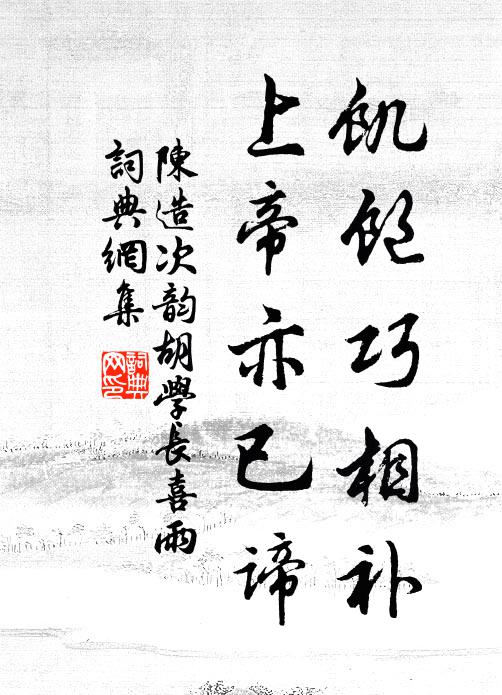 飢飽巧相补
上帝亦已諦
陳造次韵胡學長喜雨
詞典網集
詞典网印